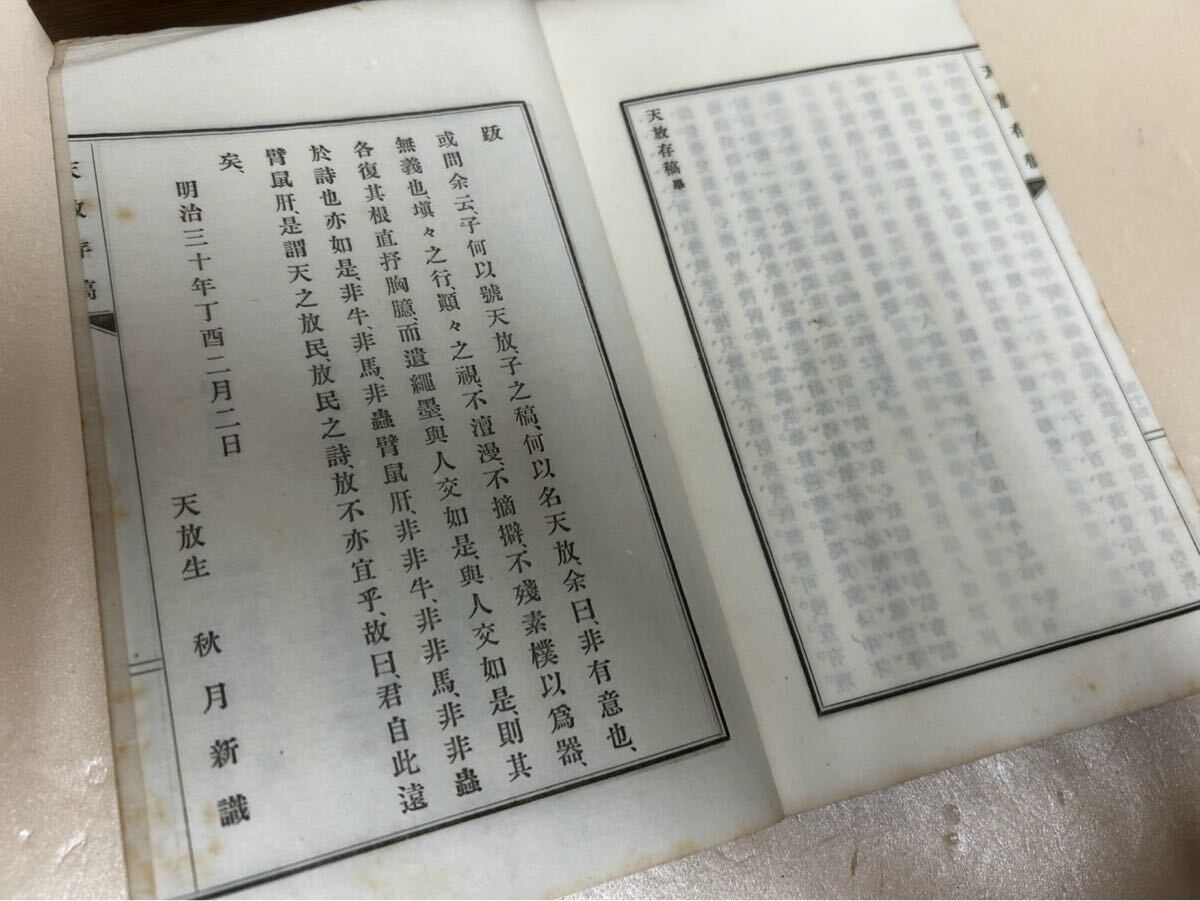 天放存稿畢
跋
或問余云、子何以號天放、子之稿、何以名天放、余曰、非有意也、
無義也、塡々之行、顚々之視、不澶漫、不摘擗、不殘素樸以爲器、
各復其根直抒胸臆、而遺繩墨、與人交如是、與人交如是、則其
於詩也亦如是、非牛、非馬、非蟲臂鼠肝、非非牛、非非馬、非非蟲
臂鼠肝、是謂天之放民、放民之詩、放不亦宜乎、故曰、君自此遠
矣、
明治三十年丁酉二月二日
天放生 秋月新識
天放存稿